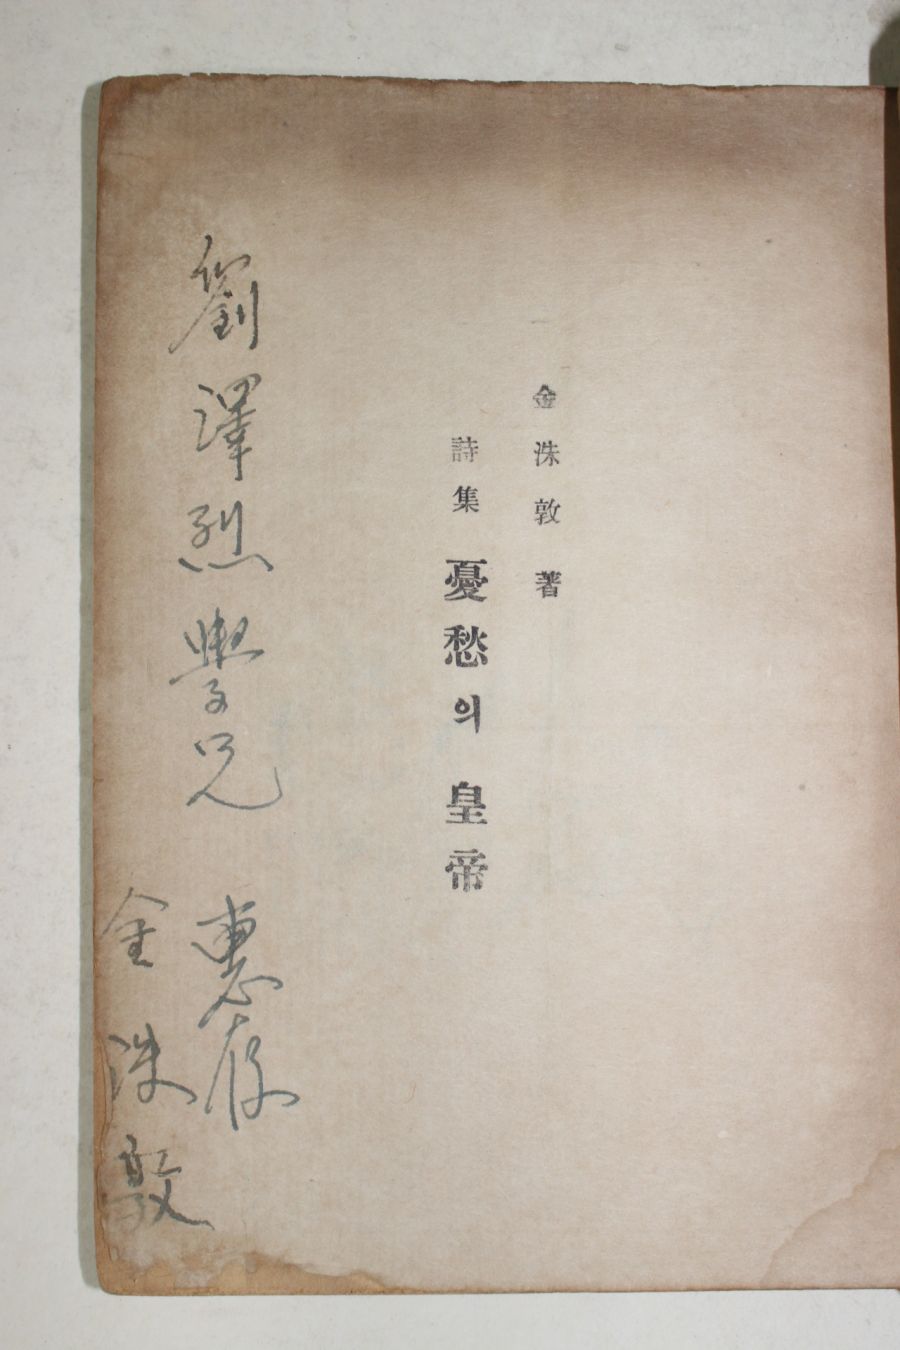 金洙敦 著
詩集 憂愁의 皇帝
劉澤烈學兄 惠存
金洙敦